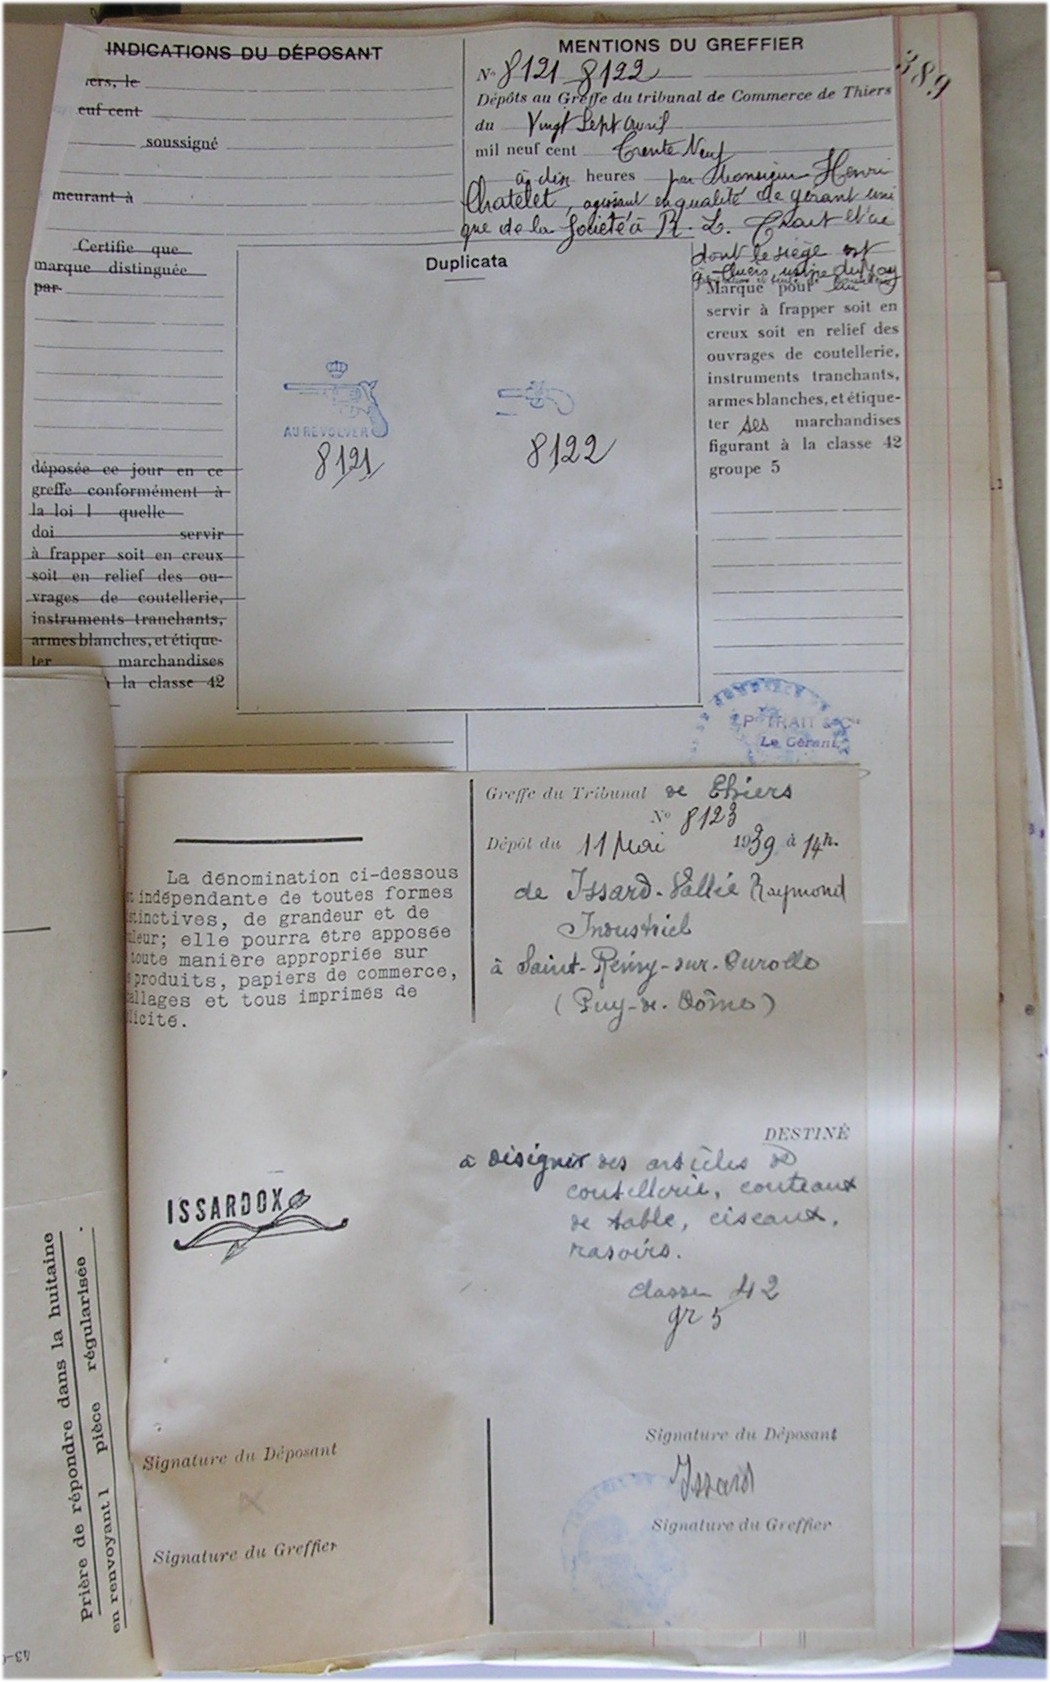 INDICATIONS DU DÉPOSANT
iers, le
euf cent
soussigné
meurant à
Certifie que
marque distinguée
par
déposée ce jour en ce
greffe conformément à
la loi l quelle
doi servir
à frapper soit en creux
soit en relief des ou-
vrages de coutellerie,
instruments tranchants,
armes blanches, et étique-
ter marchandises
la classe 42
MENTIONS DU GREFFIER
389
No 8121 8122
Dépôts au Greffe du tribunal de Commerce de Thiers
du Vingt Sept avril
mil neuf cent Trente Neuf
à dix heures par Monsieur Henri
Chatelet, agissant en qualité de gérant uni
que de la Société à R. L. Trait et Cie
dont le siège est
à Thiers, usine du
Marque pour
servir à frapper soit en
creux soit en relief des
ouvrages de coutellerie,
instruments tranchants,
armes blanches, et étique-
ter ses marchandises
figurant à la classe 42
groupe 5
Duplicata
AU REVOLVER
8121
8122
TRAIT & Cie
Le Gérant,
Greffe du Tribunal de Thiers
No 8123
Dépôt du 11 Mai 1939 à 14h.
de Issard-Vallée Raymond
Industriel
à Saint-Rémy-sur-Durolle
(Puy-de-Dôme)
La dénomination ci-dessous
indépendante de toutes formes
tinctives, de grandeur et de
leur; elle pourra être apposée
toute manière appropriée sur
produits, papiers de commerce,
allages et tous imprimés de
licité.
ISSARDOX
DESTINÉ
à désigner des articles de
coutellerie, couteaux
de table, ciseaux,
rasoirs.
classe 42
gr 5
Signature du Déposant
Signature du Greffier
Signature du Déposant
Issard
Signature du Greffier
Prière de répondre dans la huitaine
en renvoyant 1 pièce régularisée.